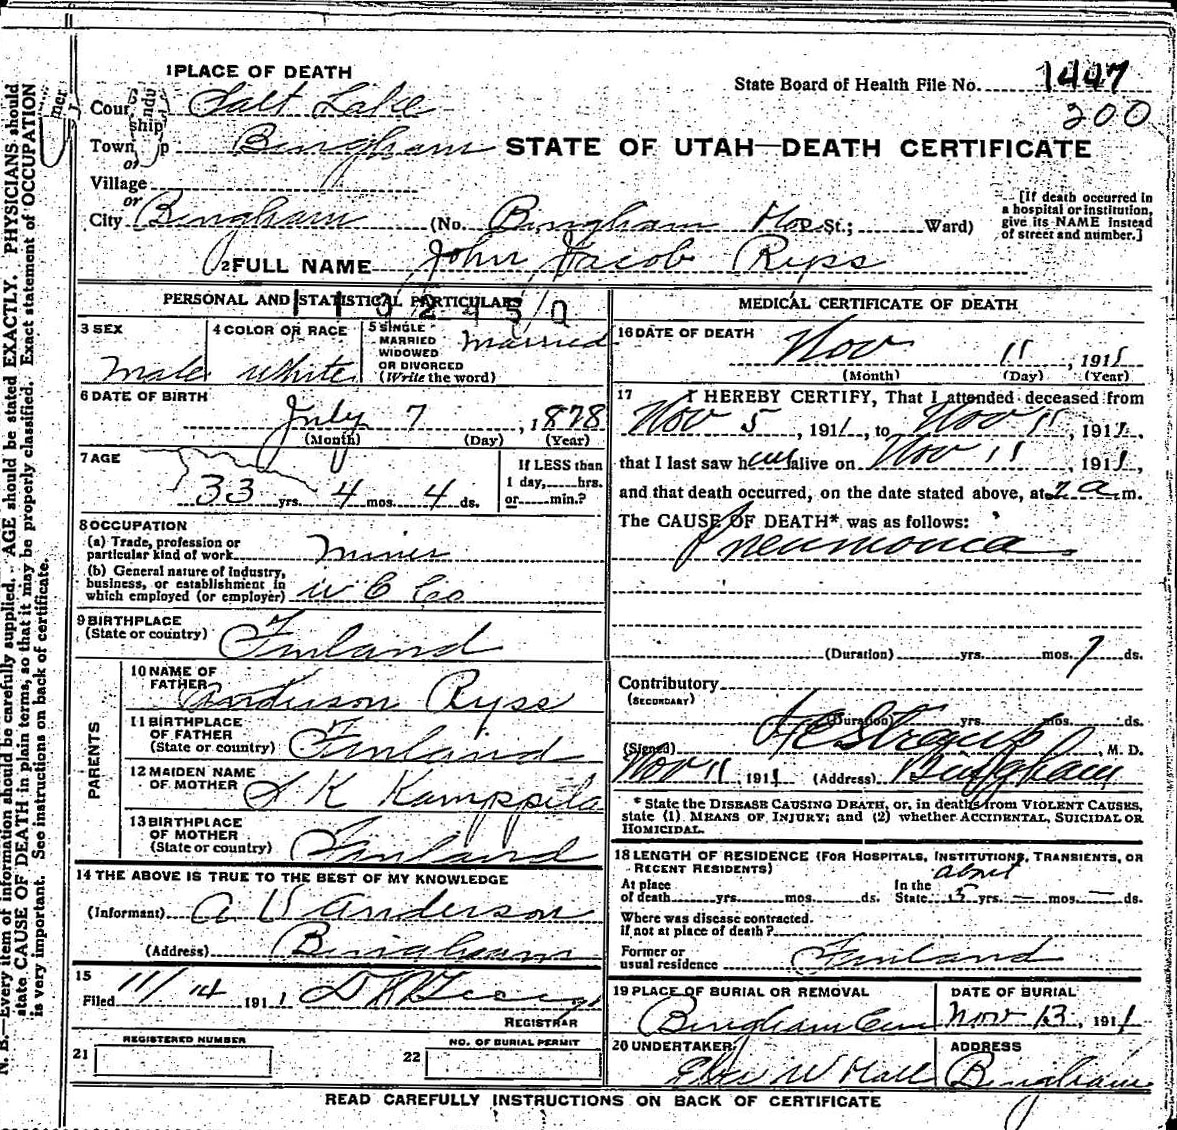 1 PLACE OF DEATH
State Board of Health File No. 1447
200
County Salt Lake
Township Bingham
or
STATE OF UTAH—DEATH CERTIFICATE
Village
or
City Bingham (No. Bingham Hos St.; Ward)
[If death occurred in a hospital or institution, give its NAME instead of street and number.]
2 FULL NAME John Jacob Ryss
PERSONAL AND STATISTICAL PARTICULARS
3 SEX
Male
4 COLOR OR RACE
White
5 SINGLE MARRIED WIDOWED OR DIVORCED (Write the word)
Married
6 DATE OF BIRTH
July 7, 1878
(Month) (Day) (Year)
7 AGE
33 yrs. 4 mos. 4 ds.
If LESS than 1 day, hrs. or min.?
8 OCCUPATION
(a) Trade, profession or particular kind of work Miner
(b) General nature of Industry, business, or establishment in which employed (or employer) W C Co
9 BIRTHPLACE (State or country) Finland
PARENTS
10 NAME OF FATHER Anderson Ryss
11 BIRTHPLACE OF FATHER (State or country) Finland
12 MAIDEN NAME OF MOTHER S K Kamppila
13 BIRTHPLACE OF MOTHER (State or country) Finland
14 THE ABOVE IS TRUE TO THE BEST OF MY KNOWLEDGE
(Informant) A V Anderson
(Address) Bingham
15
Filed 11/14 1911
REGISTRAR
21 REGISTERED NUMBER
22 NO. OF BURIAL PERMIT
MEDICAL CERTIFICATE OF DEATH
16 DATE OF DEATH
Nov 11, 1911
(Month) (Day) (Year)
17 I HEREBY CERTIFY, That I attended deceased from
Nov 5, 1911, to Nov 11, 1911,
that I last saw him alive on Nov 11, 1911,
and that death occurred, on the date stated above, at 2 a m.
The CAUSE OF DEATH* was as follows:
Pneumonia
(Duration) yrs. mos. 7 ds.
Contributory
(SECONDARY)
(Duration) yrs. mos. ds.
(Signed) Straup, M. D.
Nov 11, 1911 (Address) Bingham
* State the DISEASE CAUSING DEATH, or, in deaths from VIOLENT CAUSES,
state (1) MEANS OF INJURY; and (2) whether ACCIDENTAL, SUICIDAL OR
HOMICIDAL.
18 LENGTH OF RESIDENCE (FOR HOSPITALS, INSTITUTIONS, TRANSIENTS, OR
RECENT RESIDENTS)
At place of death yrs. mos. ds. In the State about 5 yrs. — mos. — ds.
Where was disease contracted.
if not at place of death?
Former or usual residence Finland
19 PLACE OF BURIAL OR REMOVAL
Bingham Cem
DATE OF BURIAL
Nov 13, 1911
20 UNDERTAKER
W Hall
ADDRESS
Bingham
READ CAREFULLY INSTRUCTIONS ON BACK OF CERTIFICATE
N. B.—Every item of information should be carefully supplied. AGE should be stated EXACTLY. PHYSICIANS should
state CAUSE OF DEATH in plain terms, so that it may be properly classified. Exact statement of OCCUPATION
is very important. See instructions on back of certificate.